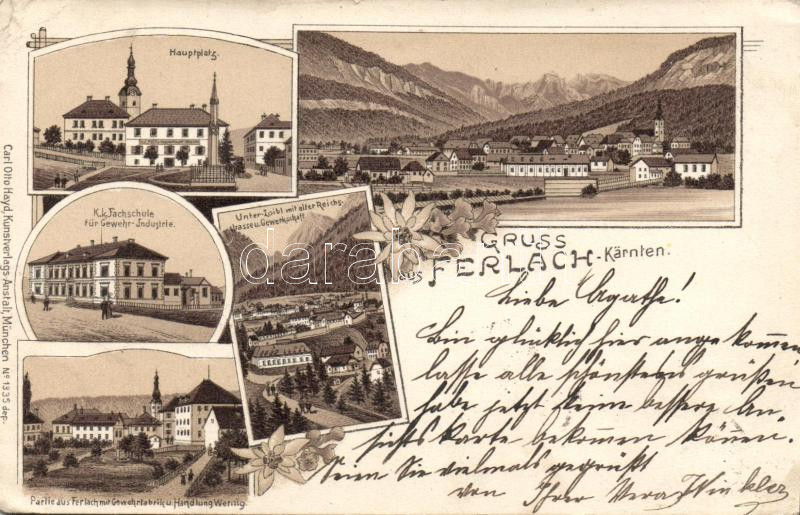 Hauptplatz.
K.k. Fachschule
für Gewehr-Industrie.
Unter-Loibl mit alter Reichs-
strasse u. Gewerkschaft
Partie aus Ferlach mit Gewehrfabrik u. Handlung Wernig.
Carl Otto Hayd, Kunstverlags-Anstalt, München No 1335 dep.
GRUSS
aus FERLACH-Kärnten.
darabanth
Liebe Agathe!
Bin glücklich hier angekommen
lasse alle schönstens grüßen
habe jetzt keine bessere An-
sichtskarte bekommen können.
Seien Sie vielmals gegrüßt
von Ihrer Vera Winkler